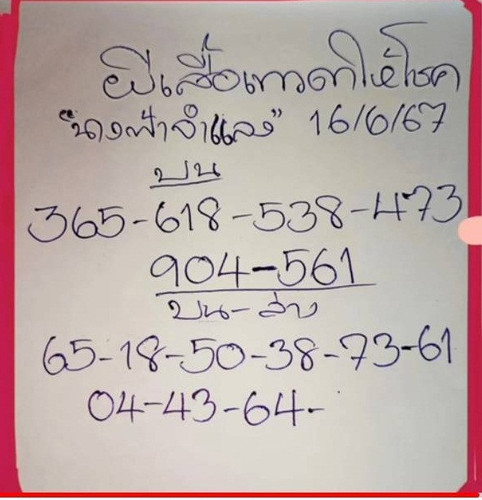 ผีเสื้อเทวดาให้โชค
"นางฟ้าจำแลง" 16/6/67
บน
365-618-538-473
904-561
บน-ล่าง
65-18-50-38-73-61
04-43-64-